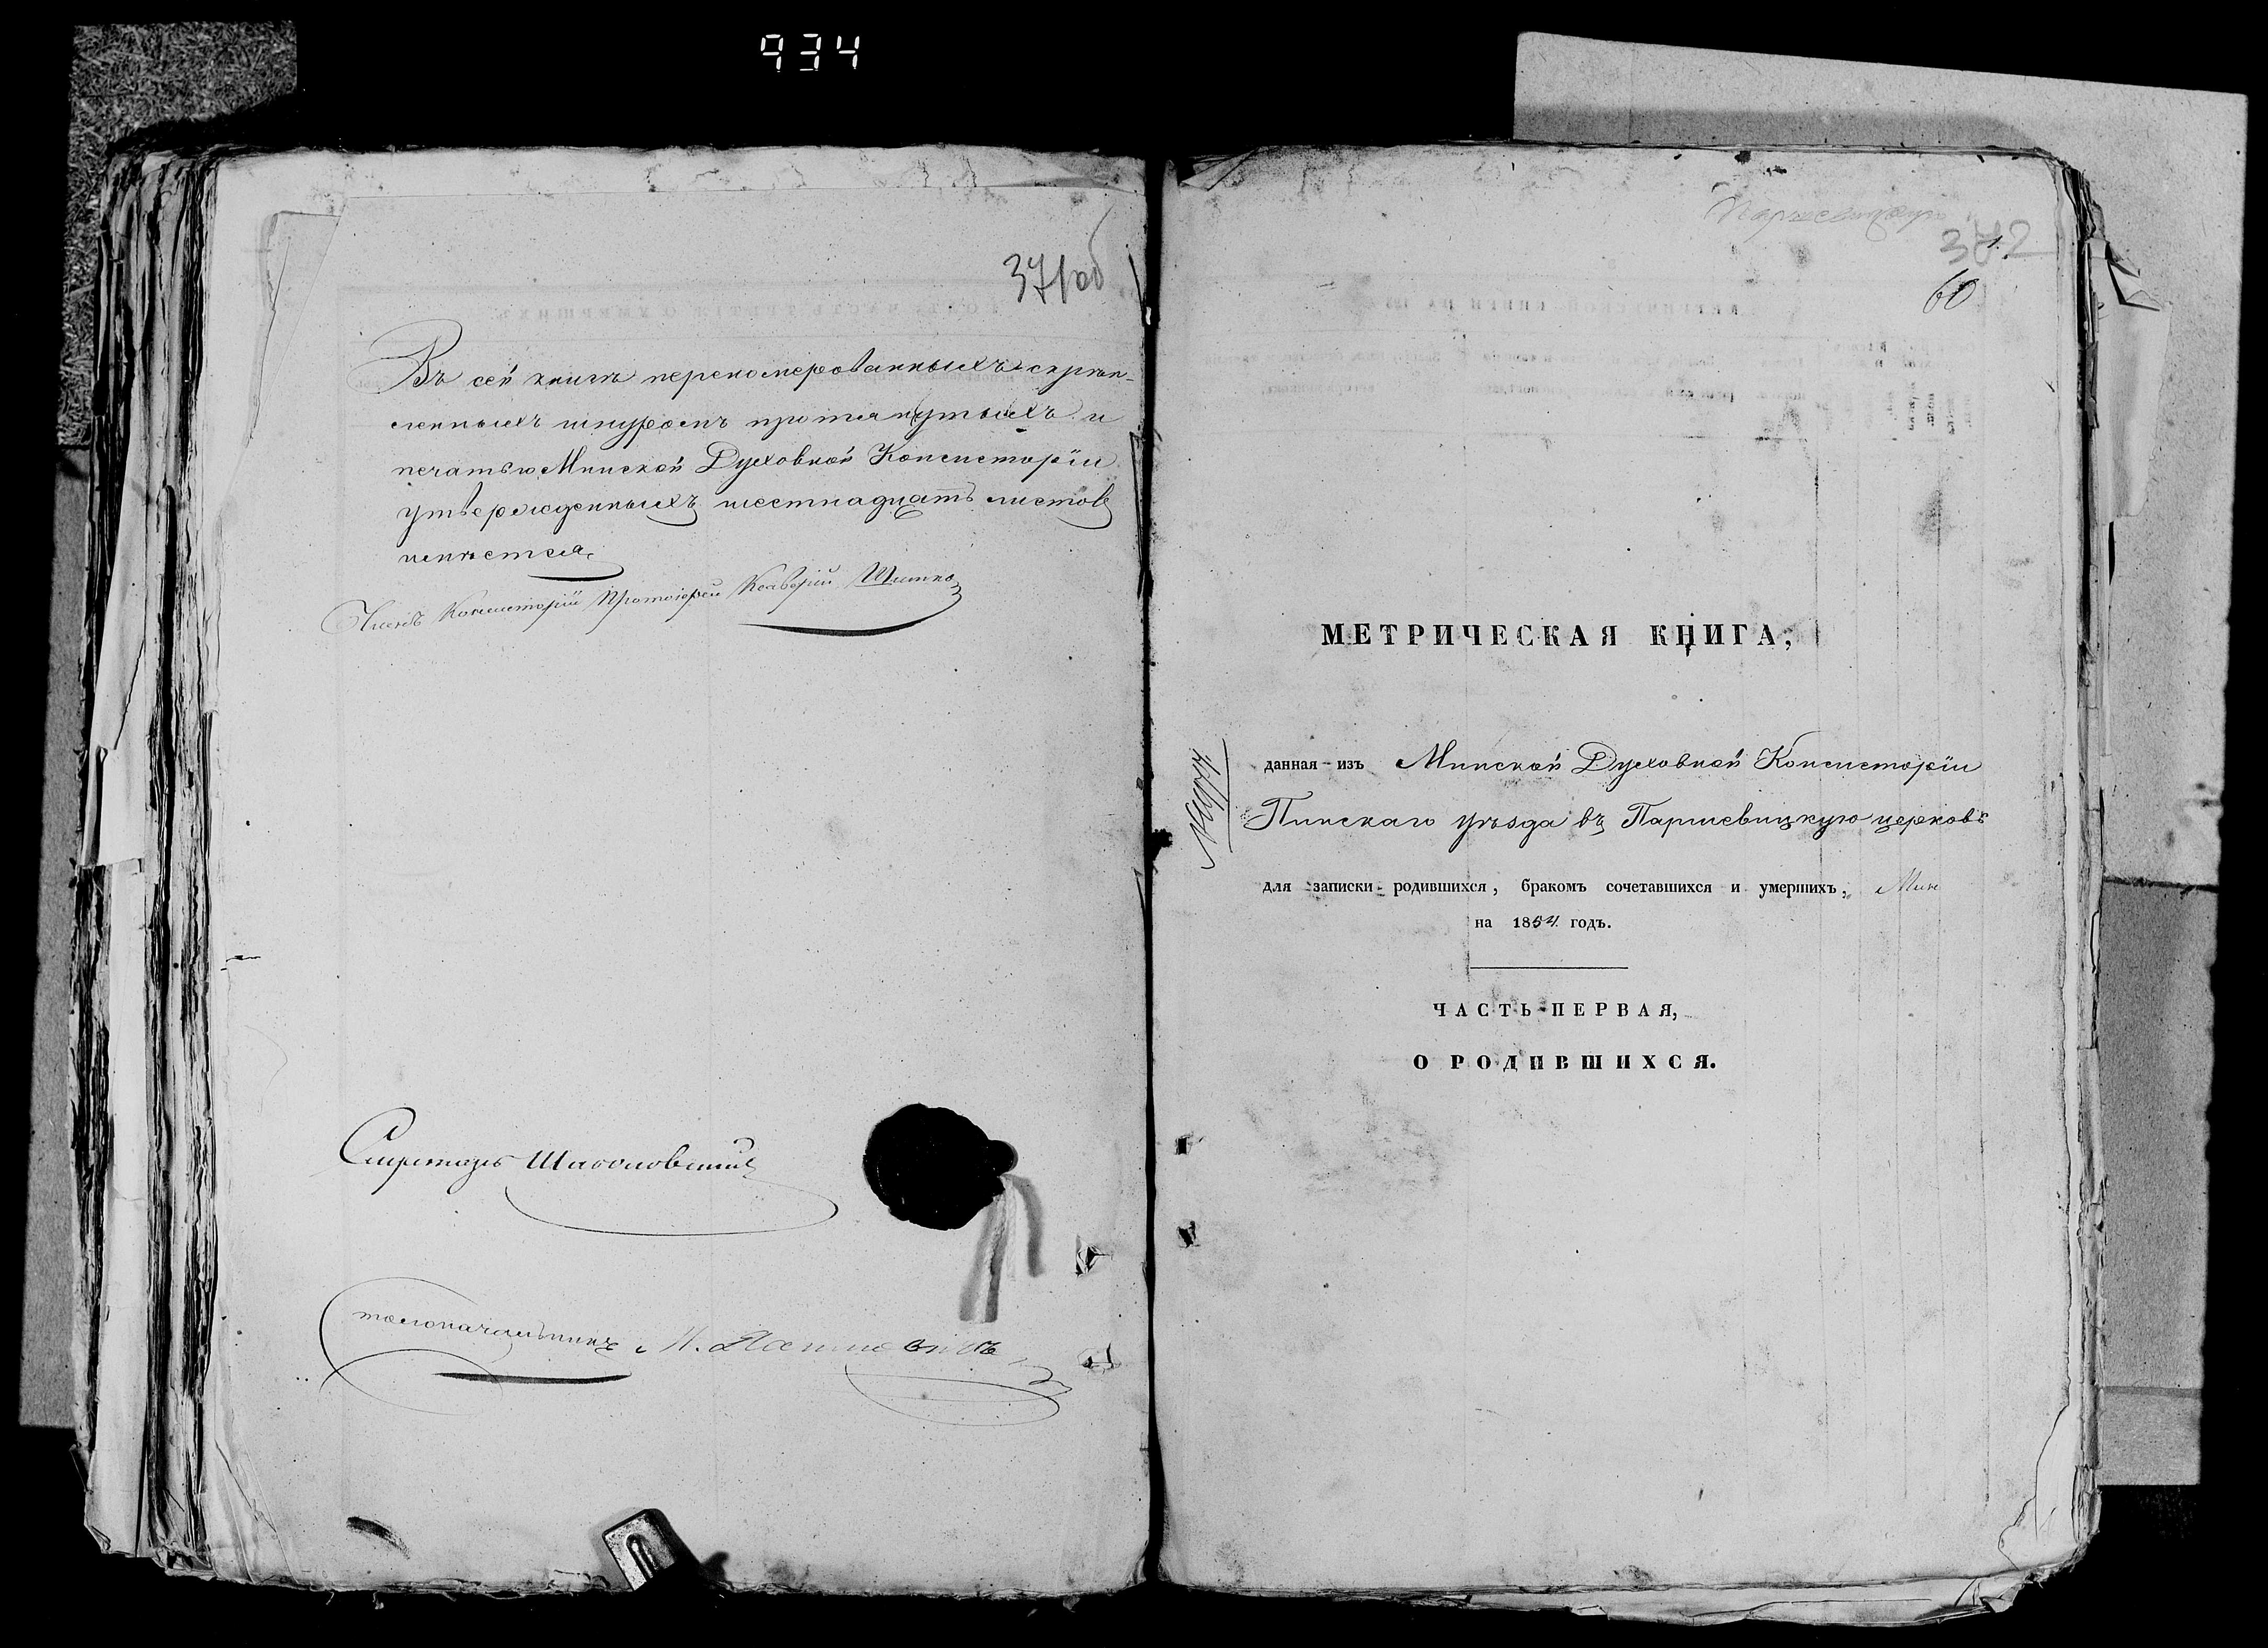 934
371 об
Въ сей книгѣ перенумерованныхъ скрѣп-
ленныхъ шнуромъ протянутыхъ и
печатью Минской Духовной Консисторіи
утвержденныхъ шестнадцать листовъ
имѣется
Членъ Консисторіи Протоіерей Ксаверій
Секретарь
столоначальникъ
372
1.
60
МЕТРИЧЕСКАЯ КНИГА,
данная изъ Минской Духовной Консисторіи
Пинскаго уѣзда въ Паршевицкую церковь
для записки родившихся, бракомъ сочетавшихся и умершихъ,
на 1854 годъ.
ЧАСТЬ ПЕРВАЯ,
О РОДИВШИХСЯ.